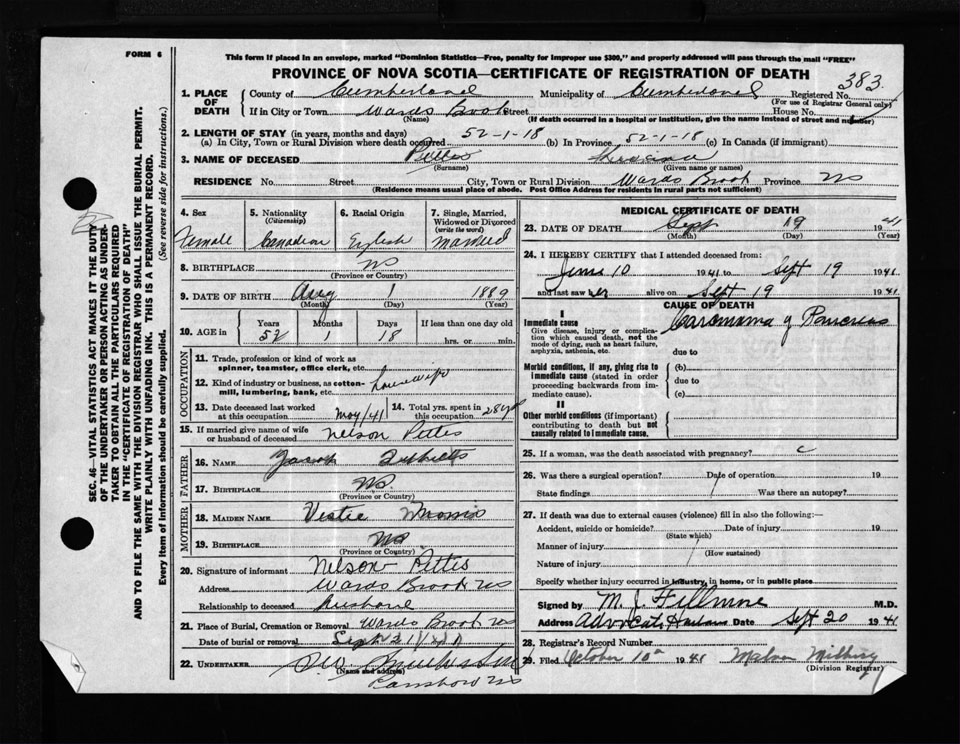 FORM 6
This form if placed in an envelope, marked "Dominion Statistics—Free, penalty for improper use $300," and properly addressed will pass through the mail "FREE"
PROVINCE OF NOVA SCOTIA—CERTIFICATE OF REGISTRATION OF DEATH
1. PLACE OF DEATH
County of Cumberland Municipality of Cumberland Registered No. 383
(For use of Registrar General only)
If in City or Town Wards Brook Street House No.
(Name) (If death occurred in a hospital or institution, give the name instead of street and number)
2. LENGTH OF STAY (in years, months and days)
(a) In City, Town or Rural Division where death occurred 52-1-18 (b) In Province 52-1-18 (c) In Canada (if immigrant)
3. NAME OF DECEASED
(Surname) (Given name or names)
RESIDENCE No. Street City, Town or Rural Division Wards Brook Province NS
(Residence means usual place of abode. Post Office Address for residents in rural parts not sufficient)
4. Sex Female
5. Nationality (Citizenship) Canadian
6. Racial Origin English
7. Single, Married, Widowed or Divorced (write the word) Married
8. BIRTHPLACE NS
(Province or Country)
9. DATE OF BIRTH Aug 1 1889
(Month) (Day) (Year)
10. AGE in Years 52 Months 1 Days 18 If less than one day old hrs. or min.
OCCUPATION
11. Trade, profession or kind of work as spinner, teamster, office clerk, etc.
12. Kind of industry or business, as cotton-mill, lumbering, bank, etc. housewife
13. Date deceased last worked at this occupation May/41
14. Total yrs. spent in this occupation 28 yrs
15. If married give name of wife or husband of deceased Nelson Pettis
FATHER
16. NAME Jacob
17. BIRTHPLACE NS
(Province or Country)
MOTHER
18. MAIDEN NAME
19. BIRTHPLACE NS
(Province or Country)
20. Signature of informant Nelson Pettis
Address Wards Brook NS
Relationship to deceased Husband
21. Place of Burial, Cremation or Removal Wards Brook NS
Date of burial or removal Sept 21
22. UNDERTAKER
(Name and address)
NS
MEDICAL CERTIFICATE OF DEATH
23. DATE OF DEATH Sept 19 1941
(Month) (Day) (Year)
24. I HEREBY CERTIFY that I attended deceased from:
June 10 1941 to Sept 19 1941
and last saw her alive on Sept 19 1941
CAUSE OF DEATH
I
Immediate cause Carcinoma of Pancreas
Give disease, injury or complication which caused death, not the mode of dying, such as heart failure, asphyxia, asthenia, etc.
due to
Morbid conditions, if any, giving rise to immediate cause (stated in order proceeding backwards from immediate cause).
(b)
due to
(c)
II
Other morbid conditions (if important) contributing to death but not causally related to immediate cause.
25. If a woman, was the death associated with pregnancy?
26. Was there a surgical operation? Date of operation 19
State findings Was there an autopsy?
27. If death was due to external causes (violence) fill in also the following:—
Accident, suicide or homicide? Date of injury 19
(State which)
Manner of injury
(How sustained)
Nature of injury
Specify whether injury occurred in industry, in home, or in public place
Signed by M. J. Fillmore M.D.
Address Advocate Harbour Date Sept 20 1941
28. Registrar's Record Number
29. Filed October 10th 1941
(Division Registrar)
SEC. 46—VITAL STATISTICS ACT MAKES IT THE DUTY
OF THE UNDERTAKER OR PERSON ACTING AS UNDER-
TAKER TO OBTAIN ALL THE PARTICULARS REQUIRED
IN THE "CERTIFICATE OF REGISTRATION OF DEATH"
AND TO FILE THE SAME WITH THE DIVISION REGISTRAR WHO SHALL ISSUE THE BURIAL PERMIT.
WRITE PLAINLY WITH UNFADING INK. THIS IS A PERMANENT RECORD.
Every item of information should be carefully supplied. (See reverse side for instructions.)